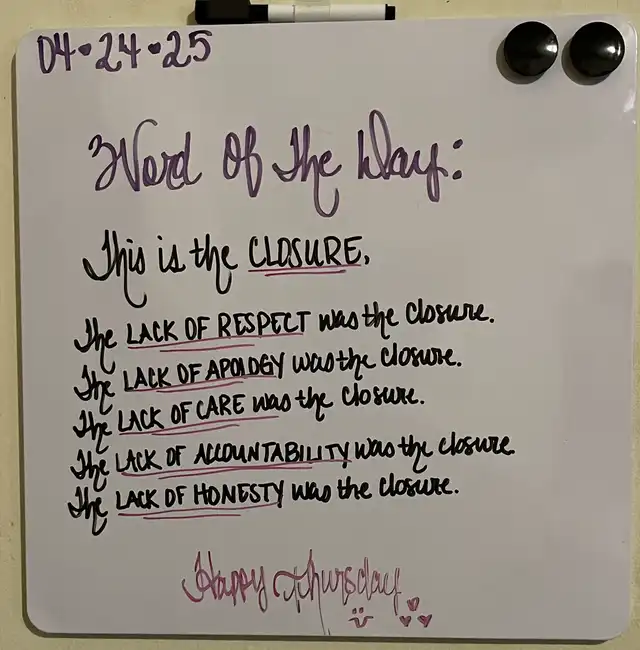 04•24•25
Word Of The Day:
This is the CLOSURE.
The LACK OF RESPECT was the closure.
The LACK OF APOLOGY was the closure.
The LACK OF CARE was the closure.
The LACK OF ACCOUNTABILITY was the closure.
The LACK OF HONESTY was the closure.
Happy Thursday